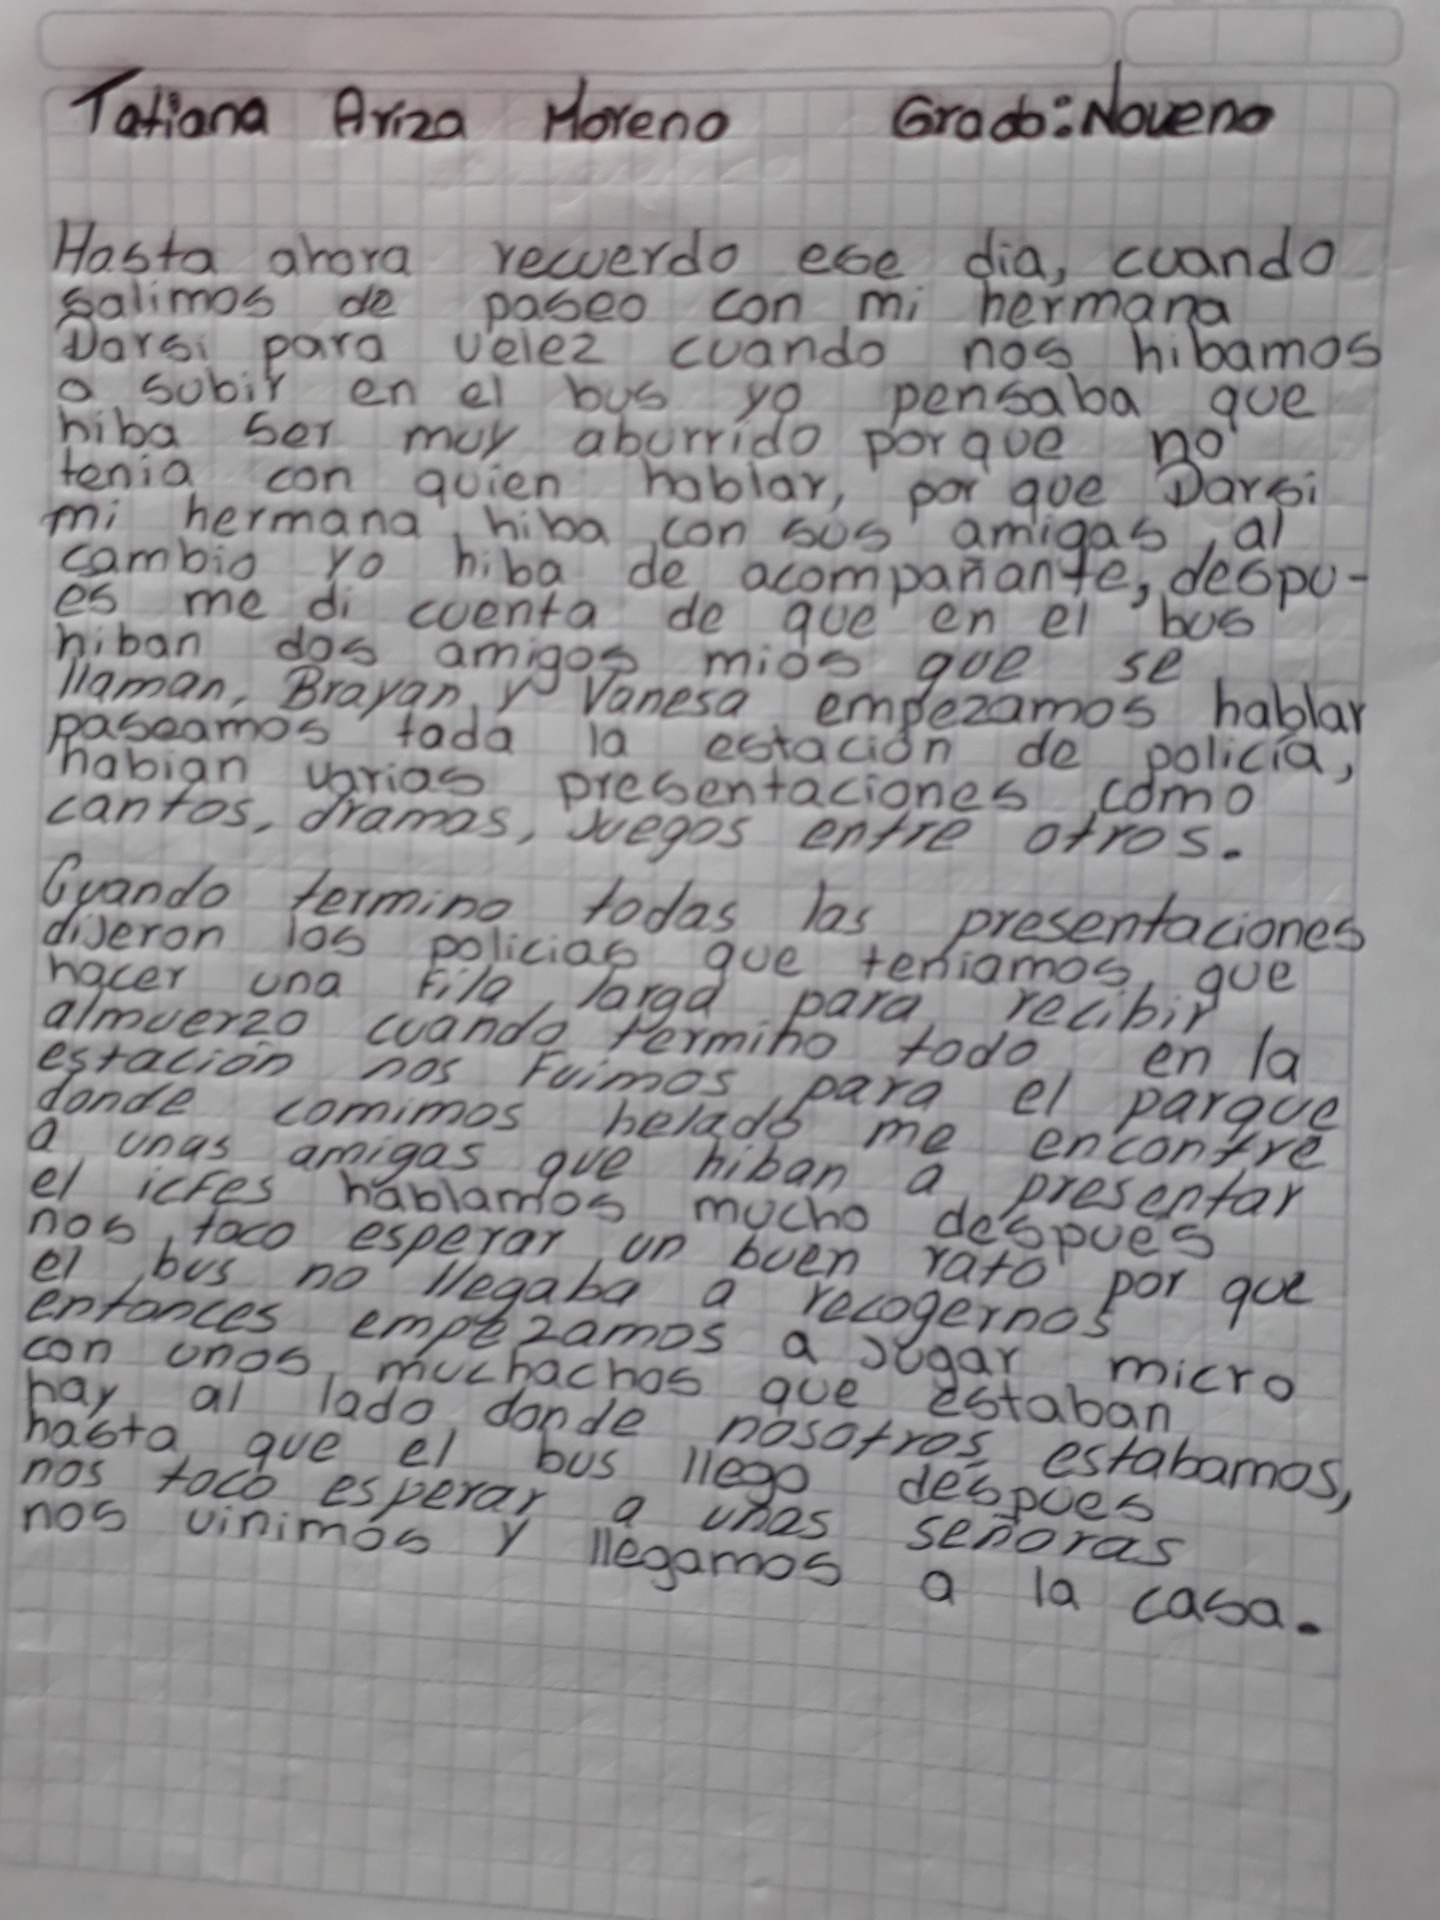 Tatiana Ariza Moreno Grado: Noveno
Hasta ahora recuerdo ese dia, cuando
salimos de paseo con mi hermana
Darsi para velez cuando nos hibamos
a subir en el bus yo pensaba que
hiba ser muy aburrido por que no
tenia con quien hablar, por que Darsi
mi hermana hiba con sus amigas, al
cambio yo hiba de acompañante, despu-
es me di cuenta de que en el bus
hiban dos amigos mios que se
llaman, Brayan y Vanesa empezamos hablar
paseamos toda la estación de policía,
habian varias presentaciones como
cantos, dramas, Juegos entre otros.
Cuando termino todas las presentaciones
dijeron los policias que teniamos que
hacer una fila larga para recibir
almuerzo cuando termino todo en la
estación nos Fuimos para el parque
donde comimos helado me encontre
a unas amigas que hiban a presentar
el icfes hablamos mucho despues
nos toco esperar un buen rato por que
el bus no llegaba a recogernos
entonces empezamos a jugar micro
con unos muchachos que estaban
hay al lado donde nosotros estabamos,
hasta que el bus llego despues
nos toco esperar a unas señoras
nos vinimos y llegamos a la casa.